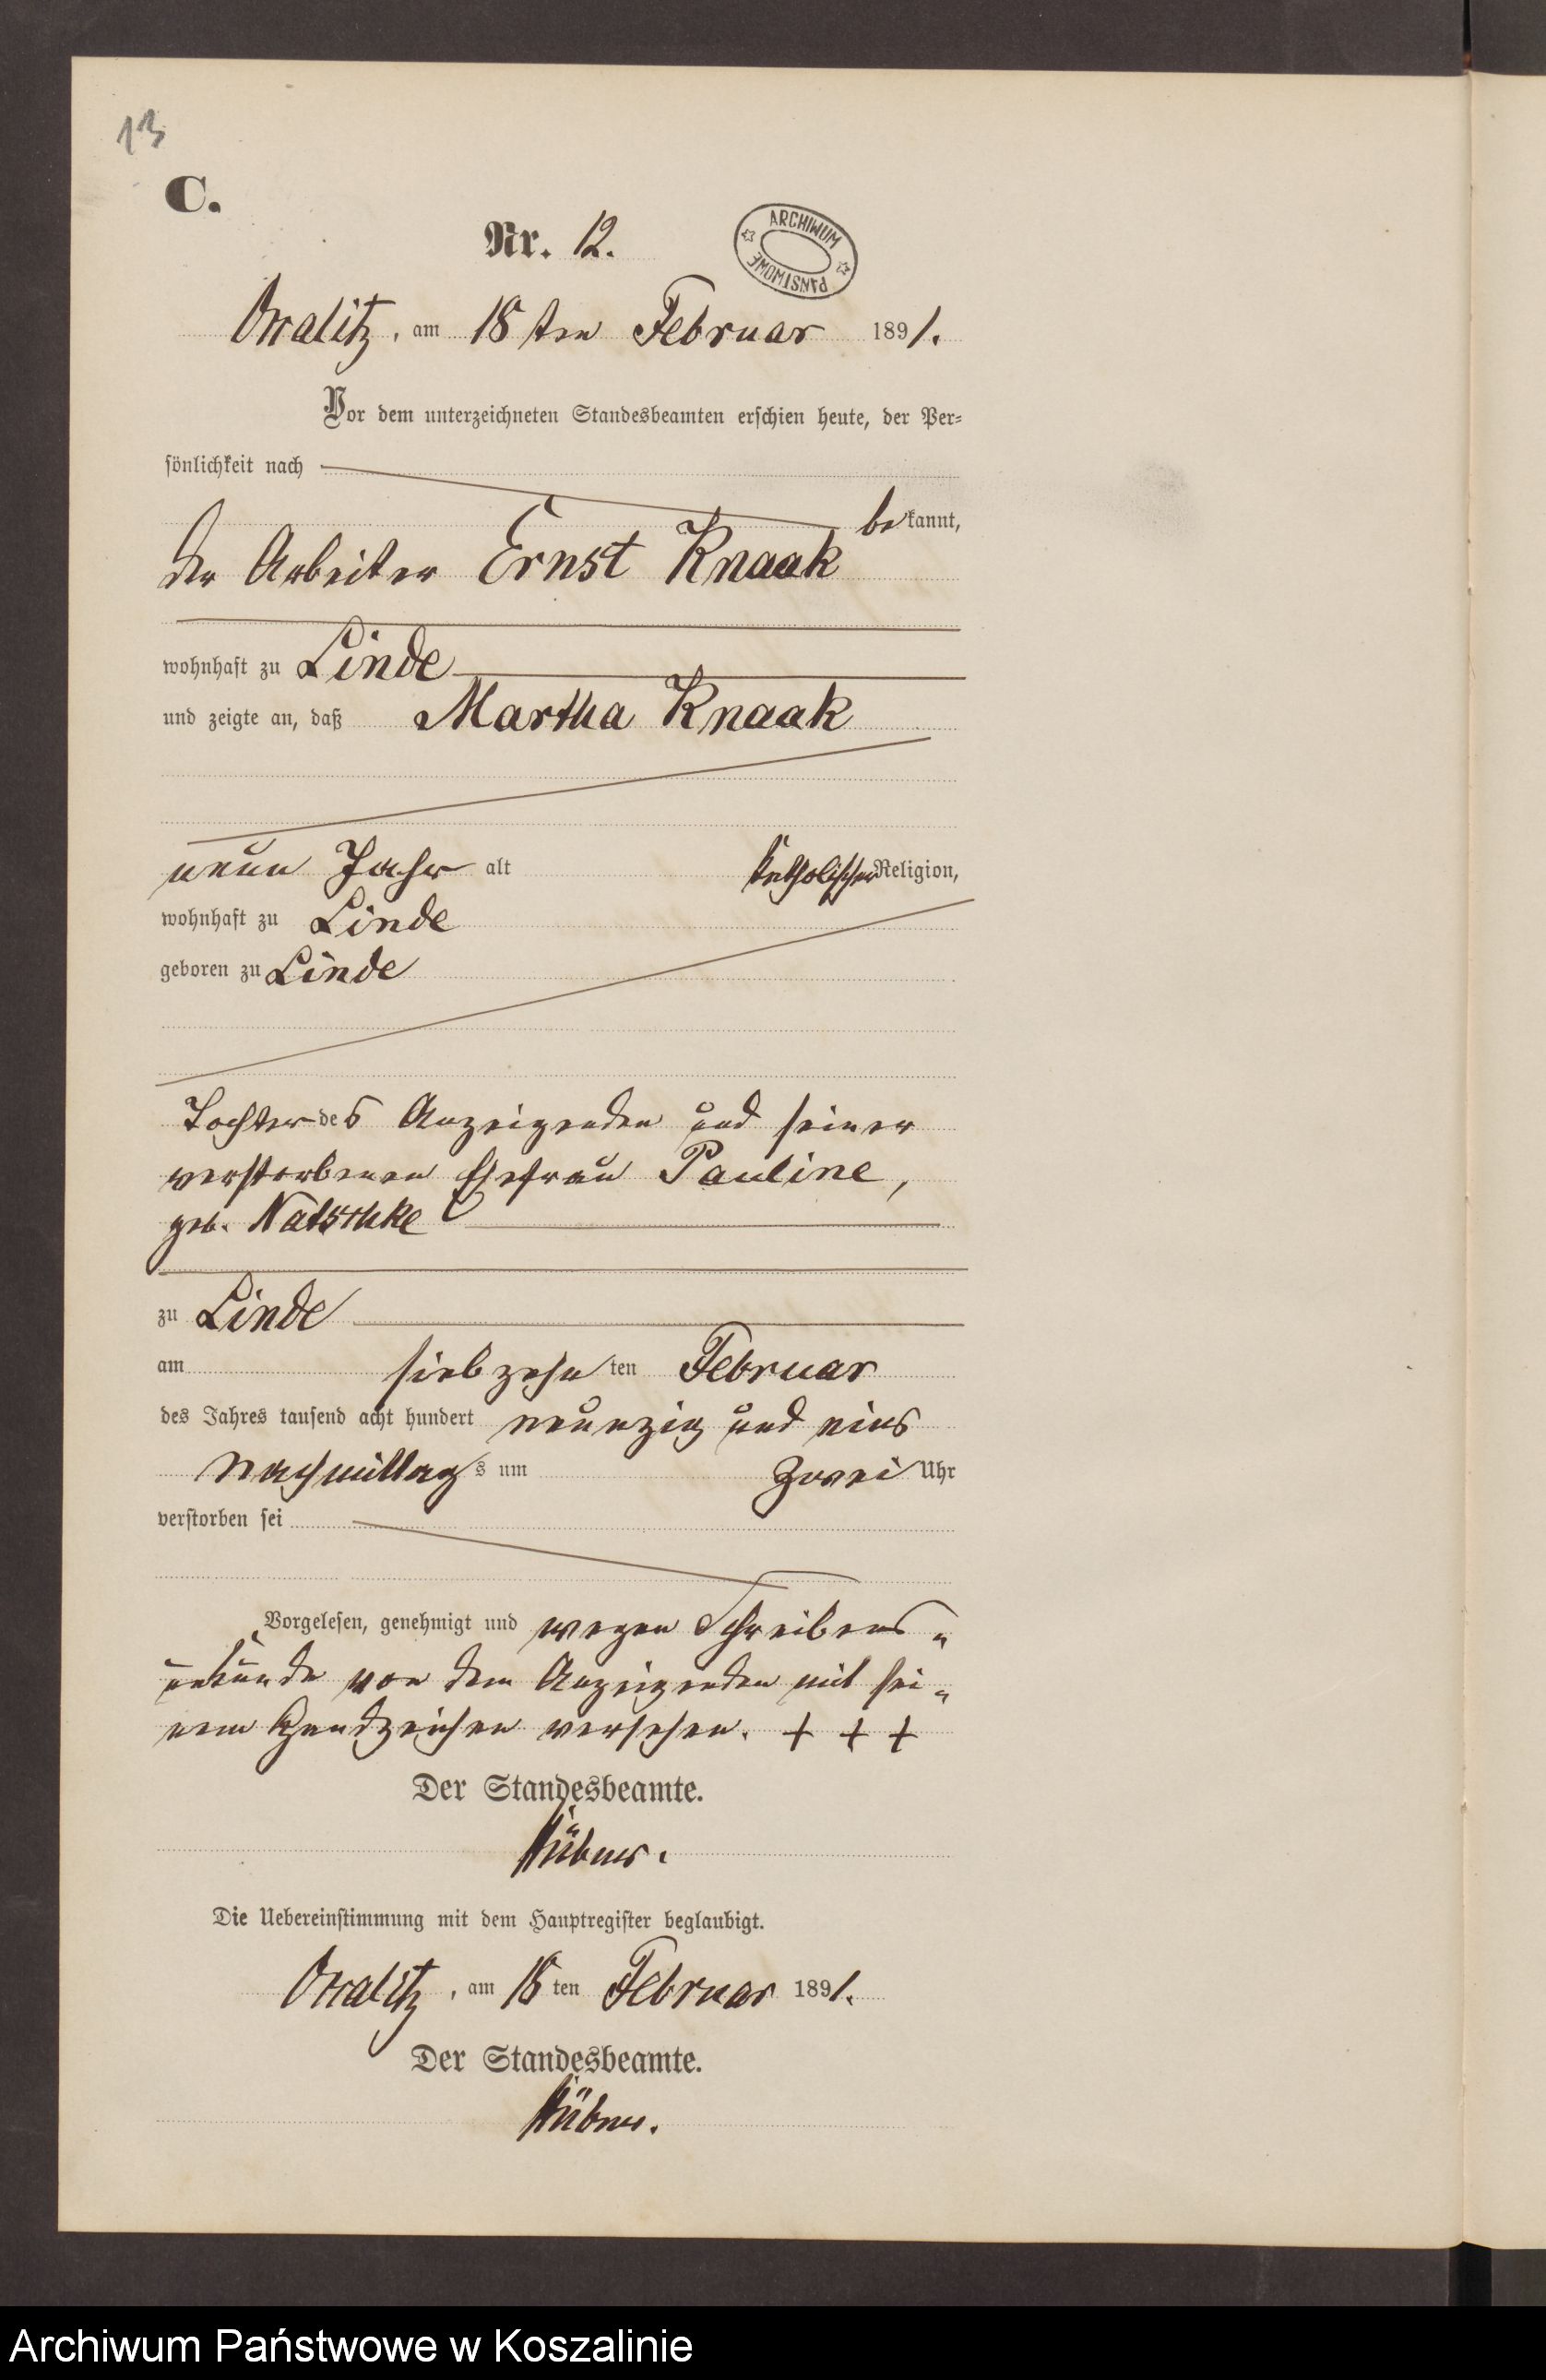 13
C.
Nr. 12.
ARCHIWUM PAŃSTWOWE
Orralitz, am 18 ten Februar 1891.
Vor dem unterzeichneten Standesbeamten erschien heute, der Per=
sönlichkeit nach
bekannt,
der Arbeiter Ernst Knaak
wohnhaft zu Linde
und zeigte an, daß Martha Knaak
neun Jahr alt katholischer Religion,
wohnhaft zu Linde
geboren zu Linde
Tochter des Anzeigenden und seiner
verstorbenen Ehefrau Pauline,
geb. Natschke
zu Linde
am siebzehnten Februar
des Jahres tausend acht hundert neunzig und eins
Nachmittags um zwei Uhr
verstorben sei
Vorgelesen, genehmigt und wegen Schreibens=
unkunde von dem Anzeigenden mit sei=
nem Handzeichen versehen. + + +
Der Standesbeamte.
Hübner.
Die Uebereinstimmung mit dem Hauptregister beglaubigt.
Orralitz, am 18 ten Februar 1891.
Der Standesbeamte.
Hübner.
Archiwum Państwowe w Koszalinie